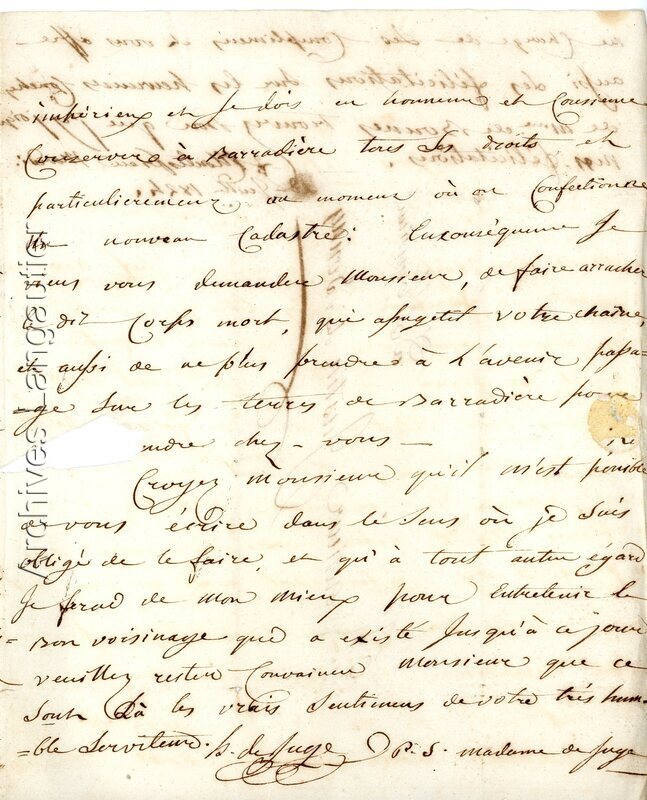 impérieux et Je dois en honneur et Consience
Conserver à Barradière tous les droits et
particulierement au moment où on Confectionne
un nouveau Cadastre: Enconséquence Je
viens vous demander Monsieur, de faire arracher
le dit Corps mort, qui assujetit votre chaîne,
et aussi de ne plus prendre à L'avenir passa-
=ge sur les terres de Barradière pour
ndre chez-vous -
Croyez Monsieur qu'il m'est pénible
de vous écrire dans le sens où je suis
obligé de le faire, et qu'à tout autre égard
Je ferai de mon mieux pour Entretenir le
Bon voisinage qui a existé Jusqu'à ce jour
veuillez rester Convaincu Monsieur que ce
sont là les vrais Sentimens de votre très hum-
=ble Serviteur. h. de Juge P. S. madame de Juge
Archives Langautier